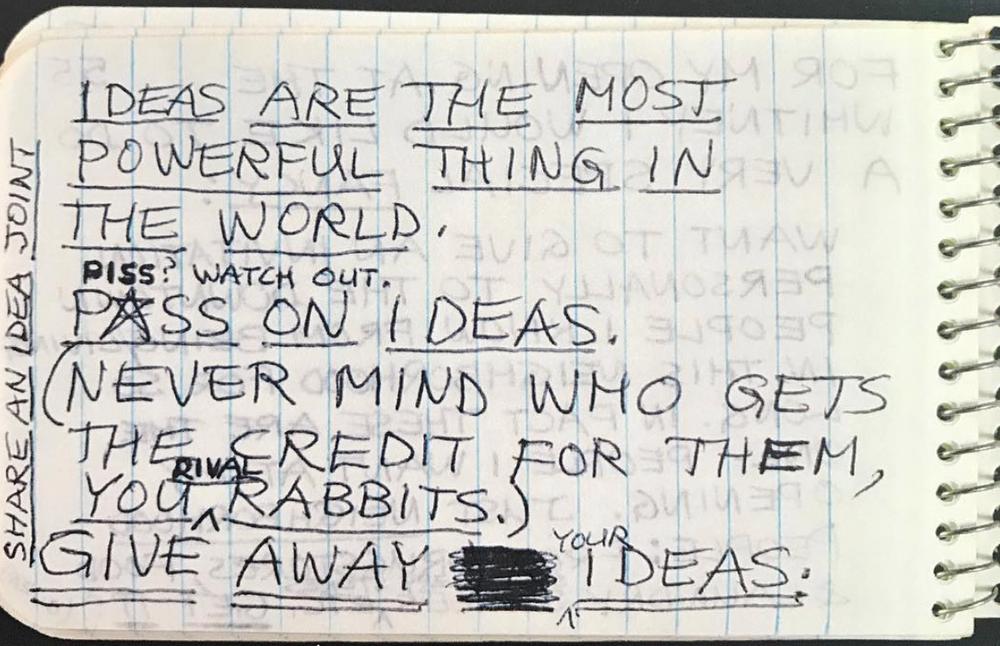 IDEAS ARE THE MOST
POWERFUL THING IN
THE WORLD.
PISS? WATCH OUT.
PASS ON IDEAS.
(NEVER MIND WHO GETS
THE CREDIT FOR THEM,
RIVAL
YOU RABBITS.)
YOUR
GIVE AWAY IDEAS.
SHARE AN IDEA JOINT